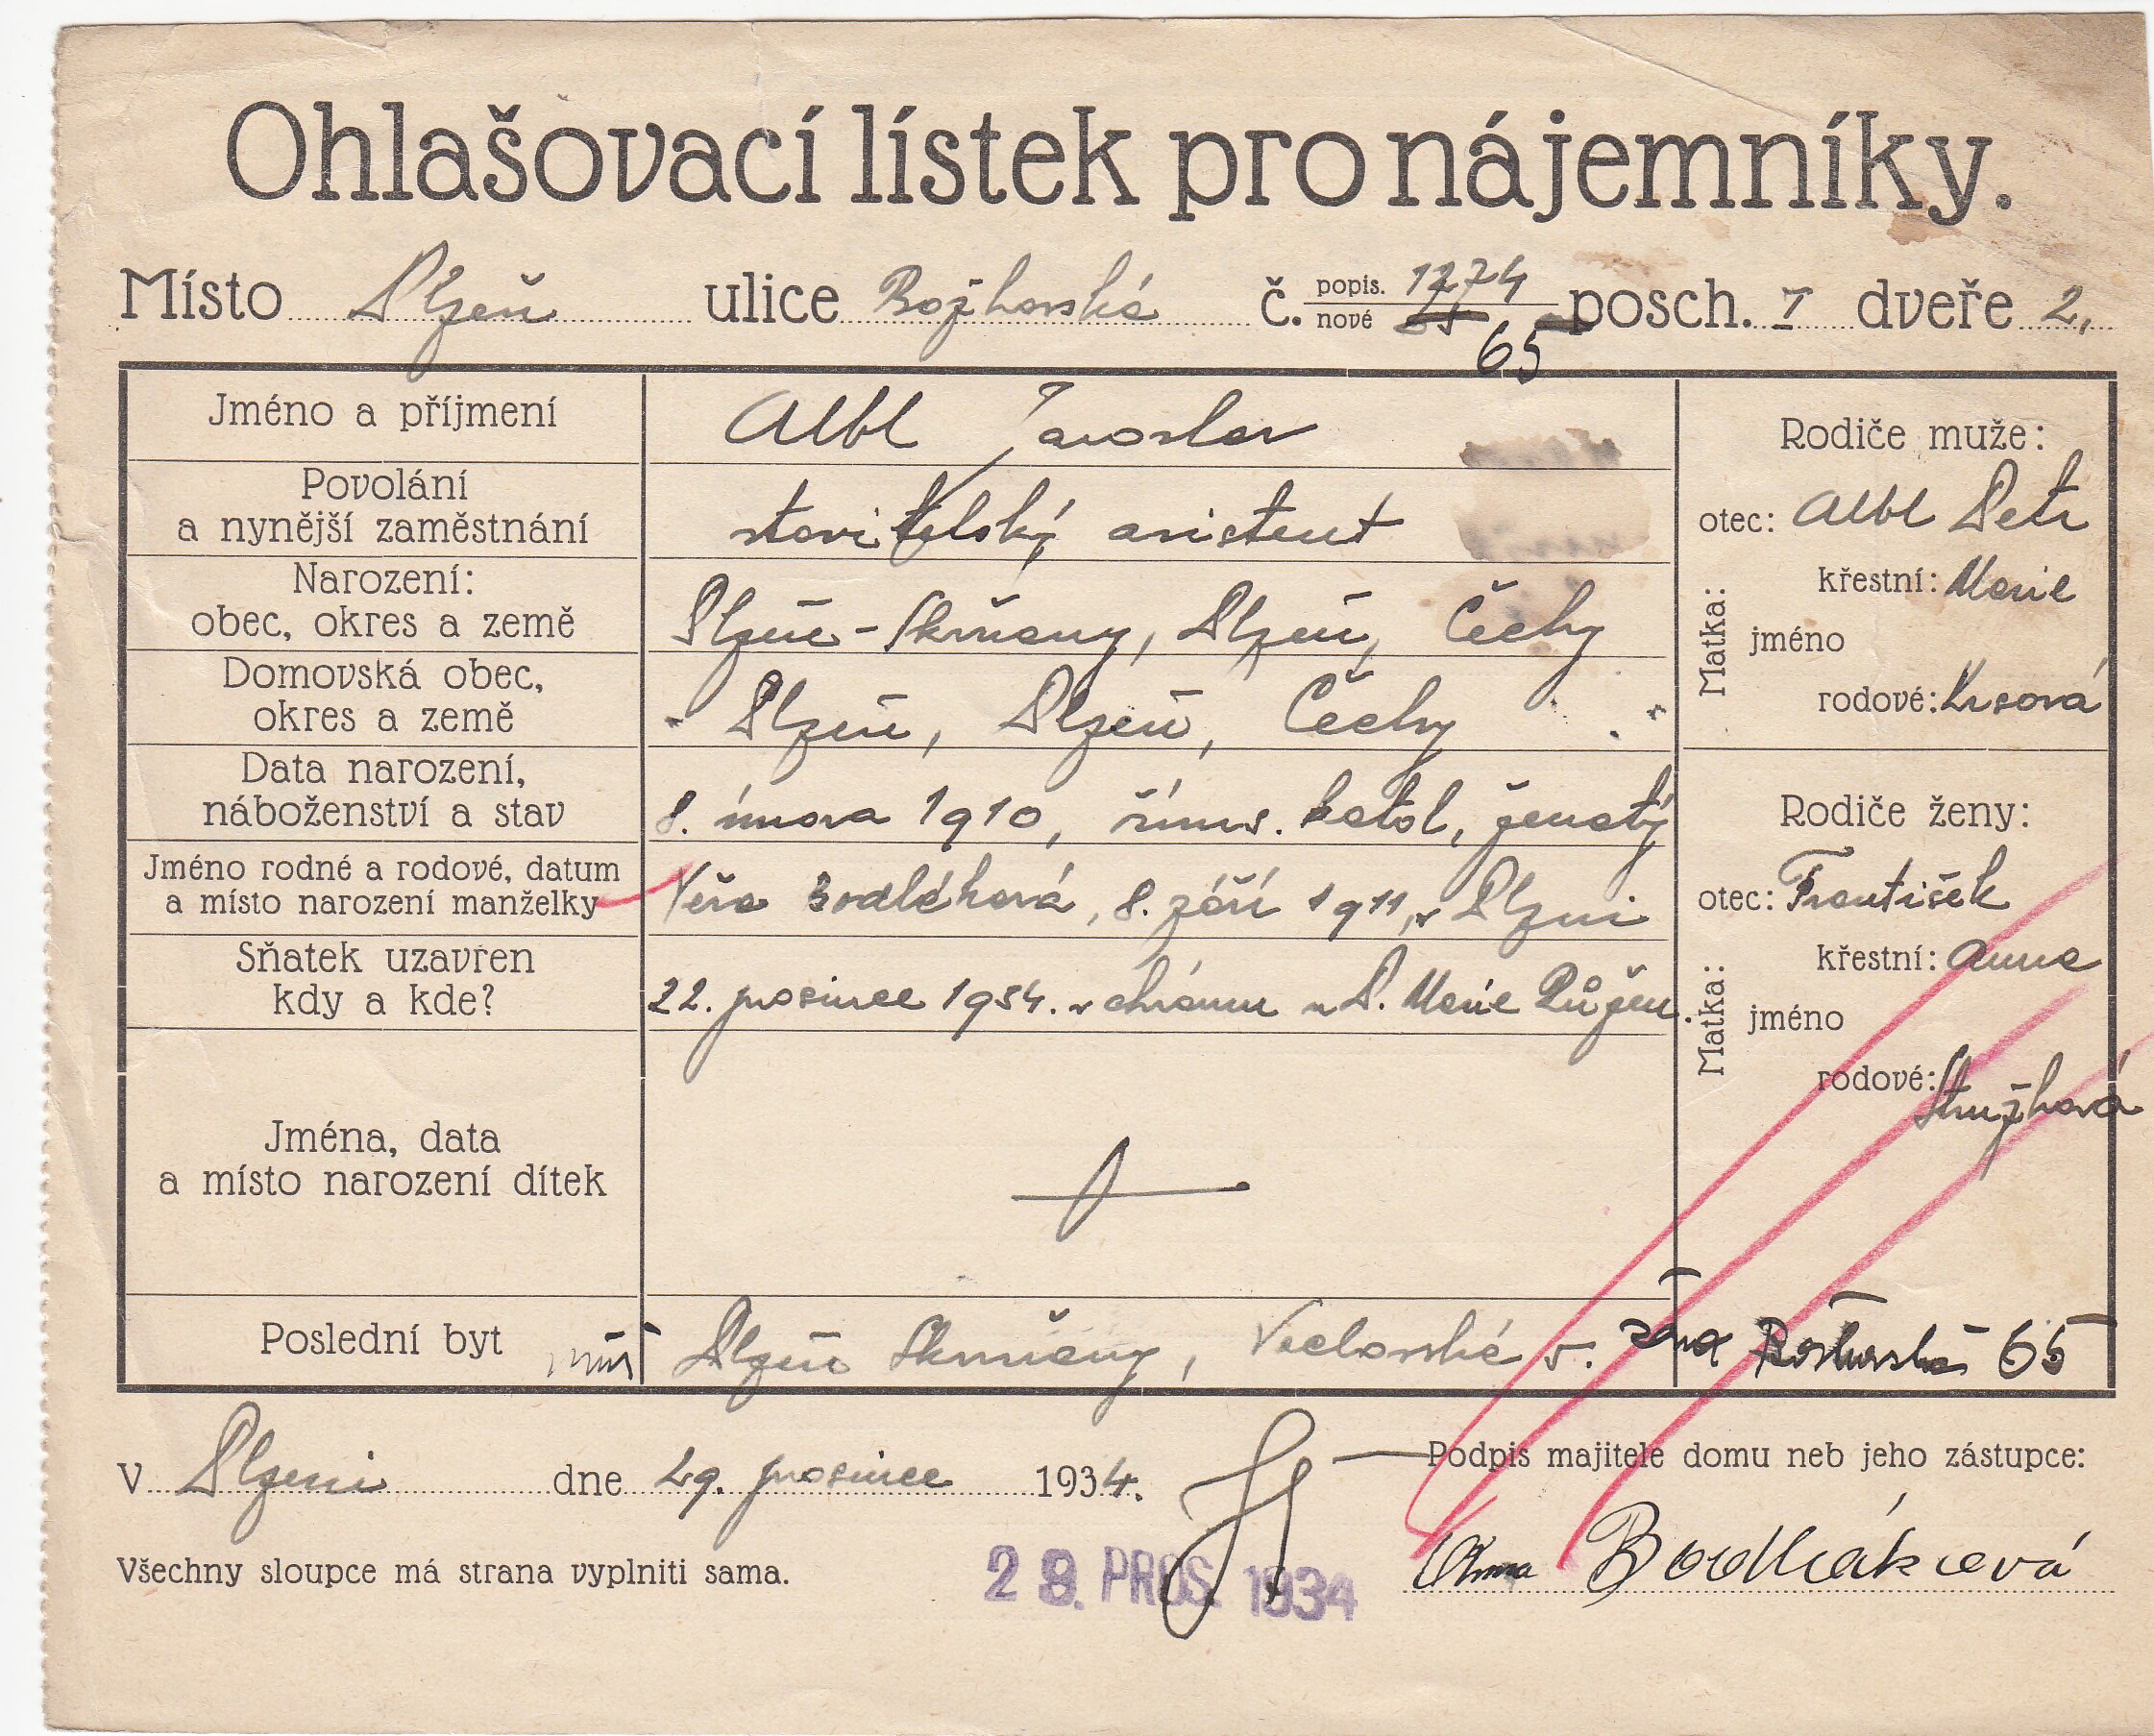 Ohlašovací lístek pro nájemníky.
Místo Plzeň ulice Božkovská č. popis. 1274 nové 65 posch. I dveře 2.
Jméno a příjmení Albl Jaroslav
Povolání a nynější zaměstnání stavitelský asistent
Narození: obec, okres a země Plzeň-Skvrňany, Plzeň, Čechy
Domovská obec, okres a země Plzeň, Plzeň, Čechy
Data narození, náboženství a stav 8. února 1910, říms. katol, ženatý
Jméno rodné a rodové, datum a místo narození manželky Věra Bodláková, 8. září 1911, v Plzni
Sňatek uzavřen kdy a kde? 22. prosince 1934. v chrámu u P. Marie Růžen.
Jména, data a místo narození dítek
Poslední byt Plzeň Skvrňany, Vaclavská 5. Božkovská 65
Rodiče muže:
otec: Albl Petr
Matka: jméno
křestní: Marie
rodové: Krsová
Rodiče ženy:
otec: František
Matka: jméno
křestní: Anna
rodové: Stružková
V Plzeni dne 29. prosince 1934.
Podpis majitele domu neb jeho zástupce:
Všechny sloupce má strana vyplniti sama.
29. PROS. 1934
Anna Bodláková